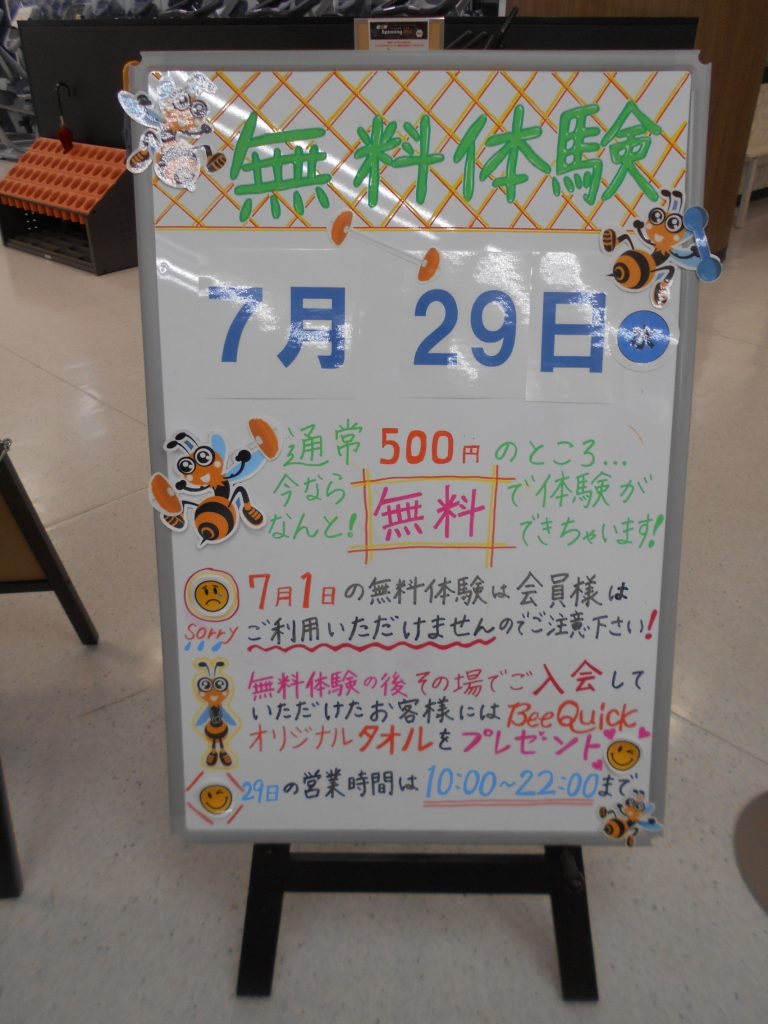 無料体験
7月 29日 水
通常 500円のところ...
今なら
なんと! 無料 で体験が
できちゃいます!
7月1日の無料体験は会員様は
sorry ご利用いただけませんのでご注意下さい!
無料体験の後その場でご入会して
いただけたお客様には BeeQuick
オリジナルタオルをプレゼント
29日の営業時間は 10:00~22:00まで